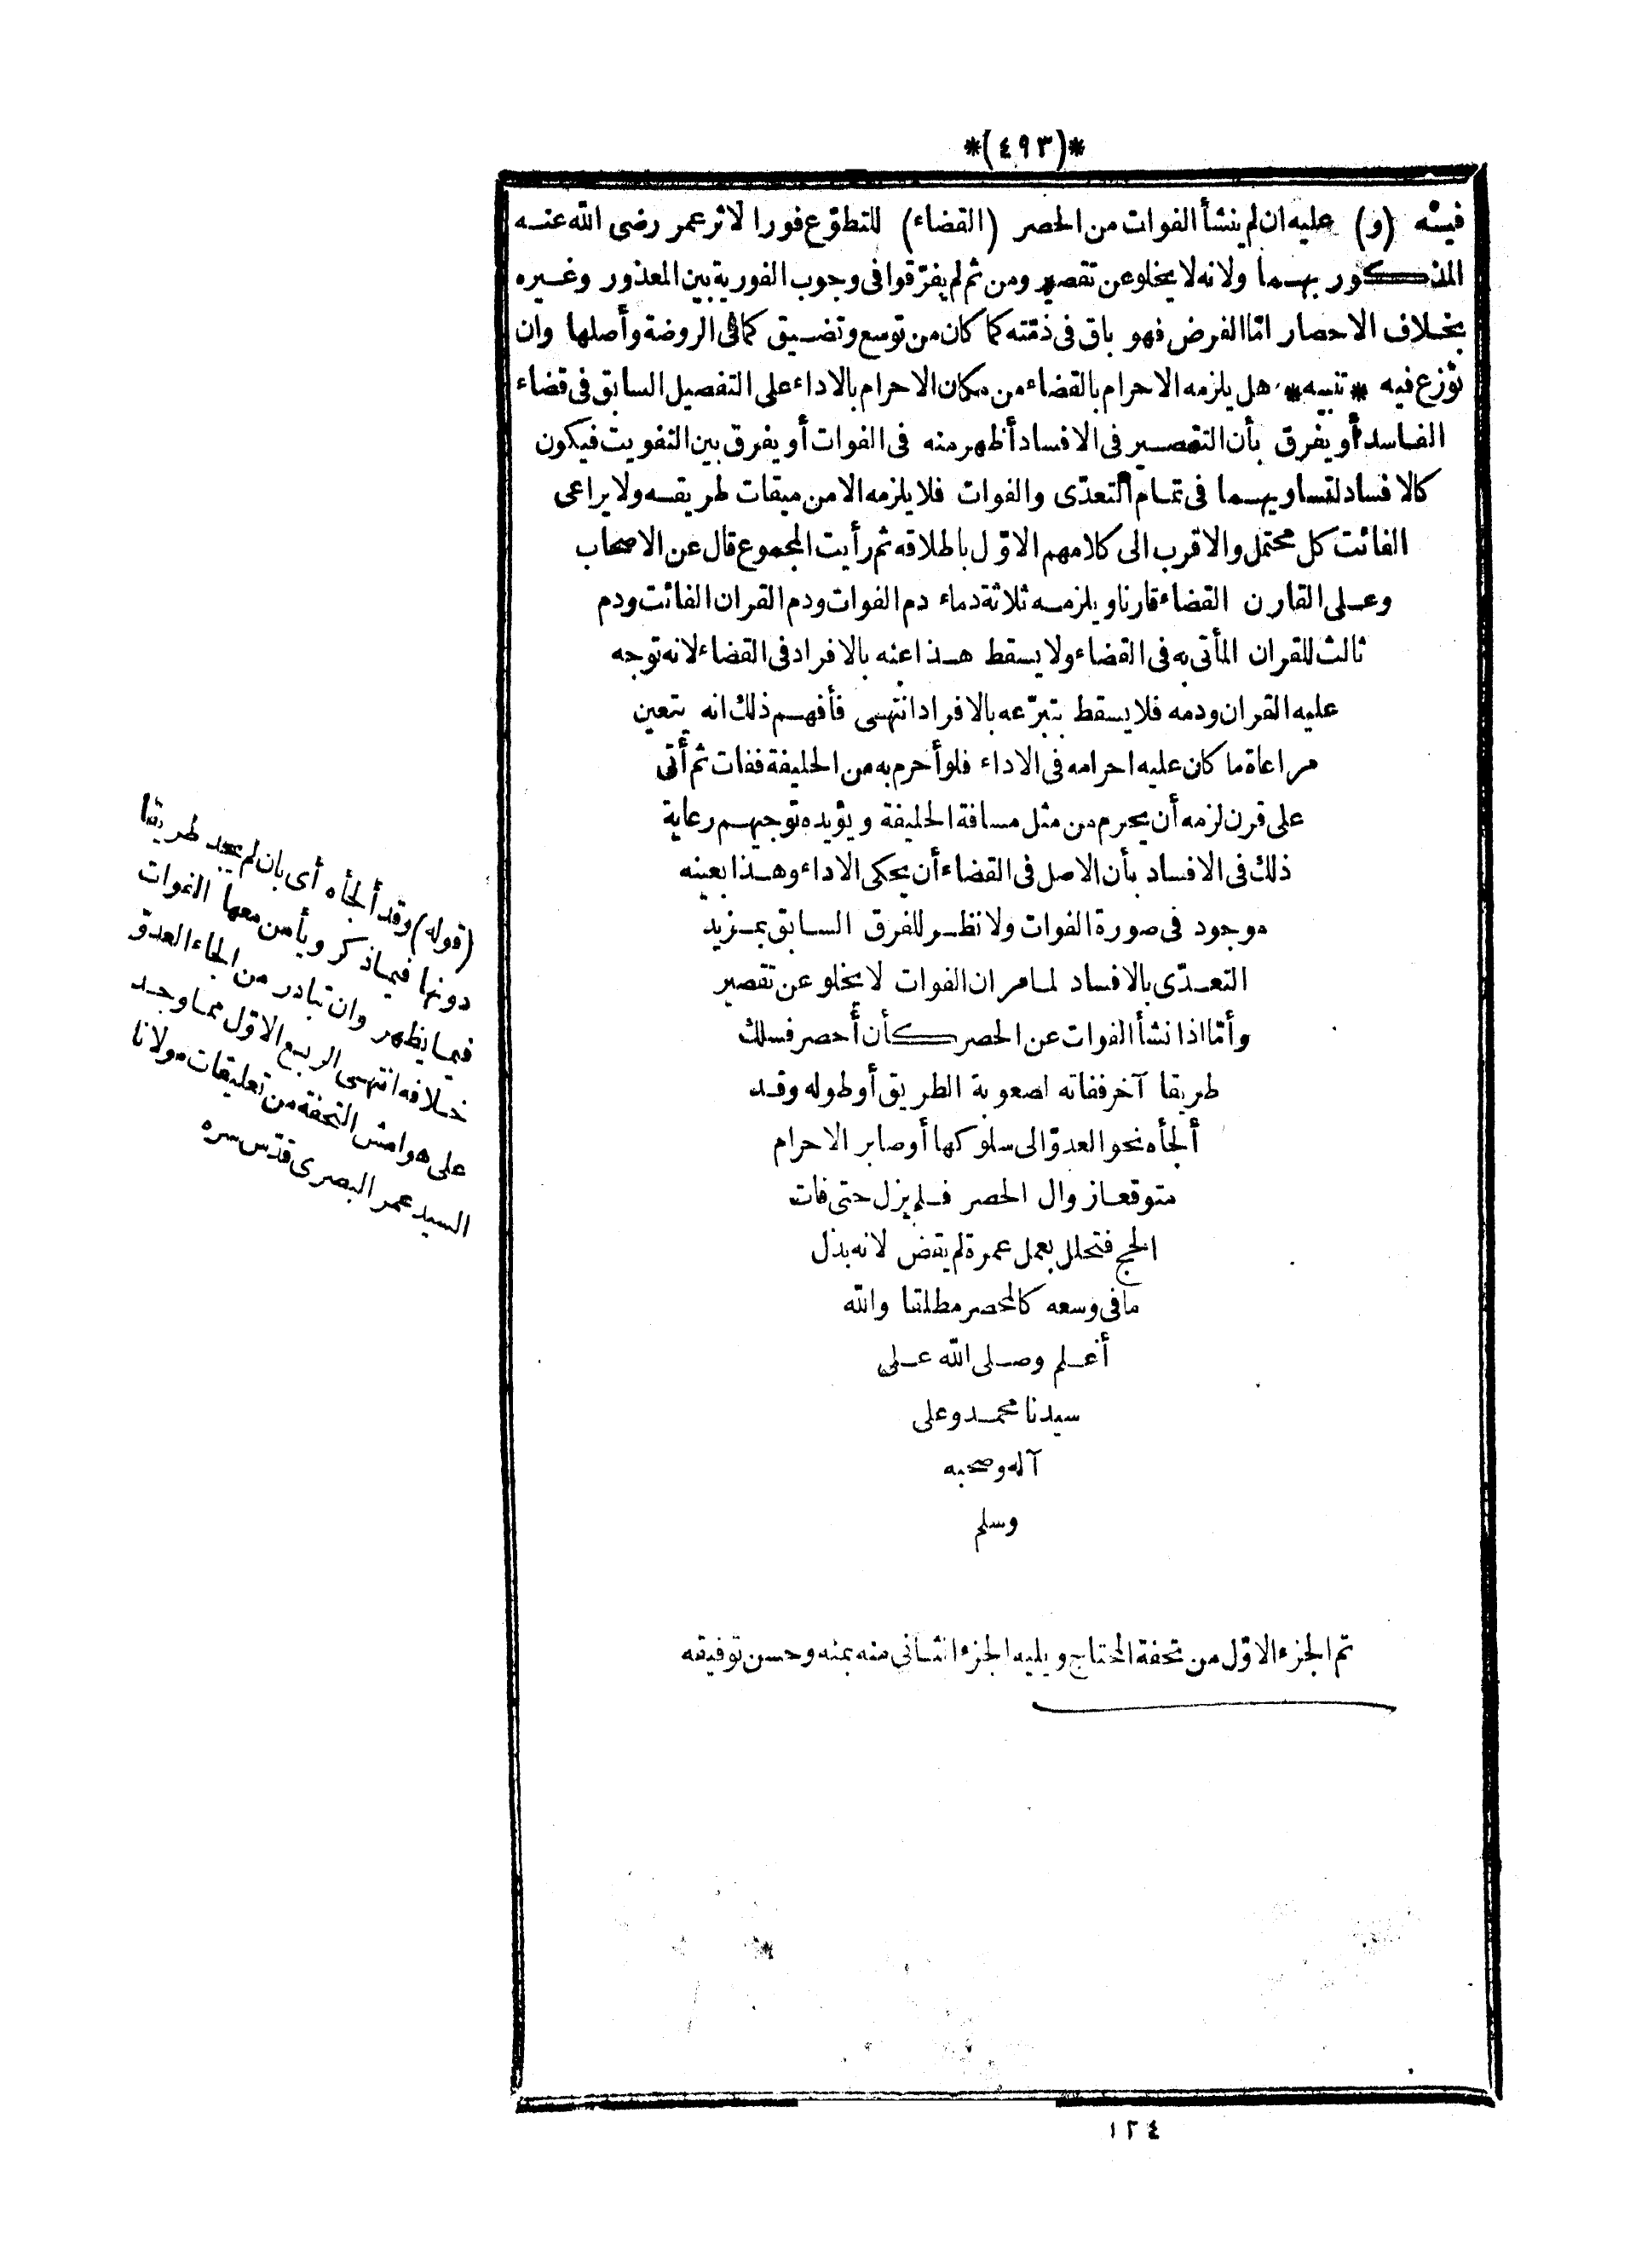 *(٤٩٣)*
فيه (و) عليه ان لم ينشأ الفوات من الحصر (القضاء) للتطوّع فورا لاثر عمر رضى الله عنه
المذكور بهما ولانه لا يخلو عن تقصير ومن ثم لم يفرّقوا فى وجوب الفورية بين المعذور وغيره
بخلاف الاحصار امّا الفرض فهو باق فى ذمّته كما كان من توسع وتضييق كما فى الروضة وأصلها وان
نوزع فيه * تنبيه * هل يلزمه الاحرام بالقضاء من مكان الاحرام بالاداء على التفصيل السابق فى قضاء
الفاسد أو يفرق بأن التقصير فى الافساد أظهر منه فى الفوات أو يفرق بين التفويت فيكون
كالافساد لتساويهما فى تمام التعدّى والفوات فلا يلزمه الا من ميقات طريقه ولا يراعى
الفائت كل محتمل والاقرب الى كلامهم الاوّل باطلاقه ثم رأيت المجموع قال عن الاصحاب
وعلى القارن القضاء قارنا ويلزمه ثلاثة دماء دم الفوات ودم القران الفائت ودم
ثالث للقران المأتى به فى القضاء ولا يسقط هذا عنه بالافراد فى القضاء لانه توجه
عليه القران ودمه فلا يسقط بتبرّعه بالافراد انتهى فأفهم ذلك انه يتعين
مراعاة ما كان عليه احرامه فى الاداء فلو أحرم به من الحليفة ففات ثم أتى
على قرن لزمه أن يحرم من مثل مسافة الحليفة ويؤيده توجيههم رعاية
ذلك فى الافساد بأن الاصل فى القضاء أن يحكى الاداء وهذا بعينه
موجود فى صورة الفوات ولا نظر للفرق السابق بمزيد
التعدّى بالافساد لما مر ان الفوات لا يخلو عن تقصير
وأمّا اذا نشأ الفوات عن الحصر كأن أحصر فسلك
طريقا آخر ففاته لصعوبة الطريق أو طوله وقد
ألجأه نحو العدوّ الى سلوكها أو صابر الاحرام
متوقعا زوال الحصر فلم يزل حتى فات
الحج فتحلل بعمل عمرة لم يقض لانه بذل
ما فى وسعه كالمحصر مطلقا والله
أعلم وصلى الله على
سيدنا محمد وعلى
آله وصحبه
وسلم
تم الجزء الاوّل من تحفة المحتاج ويليه الجزء الثانى منه بمنه وحسن توفيقه
(قوله) وقد ألجأه أى بان لم يجد طريقا
دونها فيما ذكر ويأمن معها الفوات
فيما يظهر وان تبادر من الجاء العدوّ
خلافه انتهى الربع الاوّل مما وجد
على هوامش التحفة من تعليقات مولانا
السيد عمر البصرى قدّس سره
١٢٤